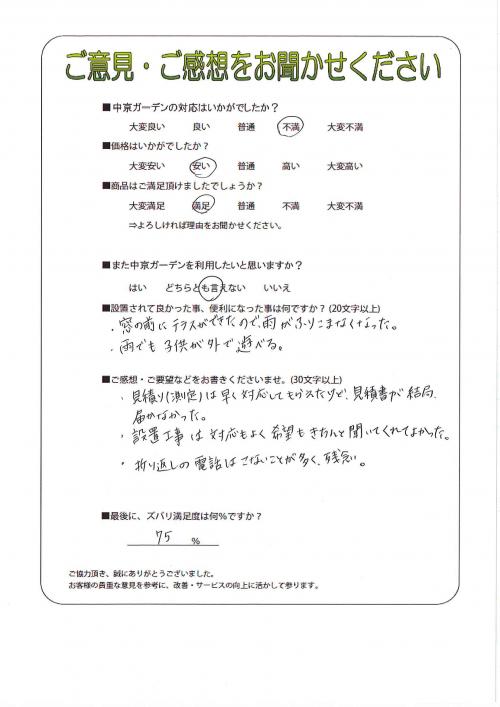 ご意見・ご感想をお聞かせください
■中京ガーデンの対応はいかがでしたか？
大変良い 良い 普通 不満 大変不満
■価格はいかがでしたか？
大変安い 安い 普通 高い 大変高い
■商品はご満足頂けましたでしょうか？
大変満足 満足 普通 不満 大変不満
⇒よろしければ理由をお聞かせください。
■また中京ガーデンを利用したいと思いますか？
はい どちらとも言えない いいえ
■設置されて良かった事、便利になった事は何ですか？(20文字以上)
・窓の前にテラスができたので、雨がふりこまなくなった。
・雨でも子供が外で遊べる。
■ご感想・ご要望などをお書きくださいませ。(30文字以上)
・見積り(測定)は早く対応してもらえたけど、見積書が結局、
届かなかった。
・設置工事は対応もよく希望もきちんと聞いてくれてよかった。
・折り返しの電話はこないことが多く、残念。
■最後に、ズバリ満足度は何％ですか？
75 %
ご協力頂き、誠にありがとうございました。
お客様の貴重な意見を参考に、改善・サービスの向上に活かして参ります。